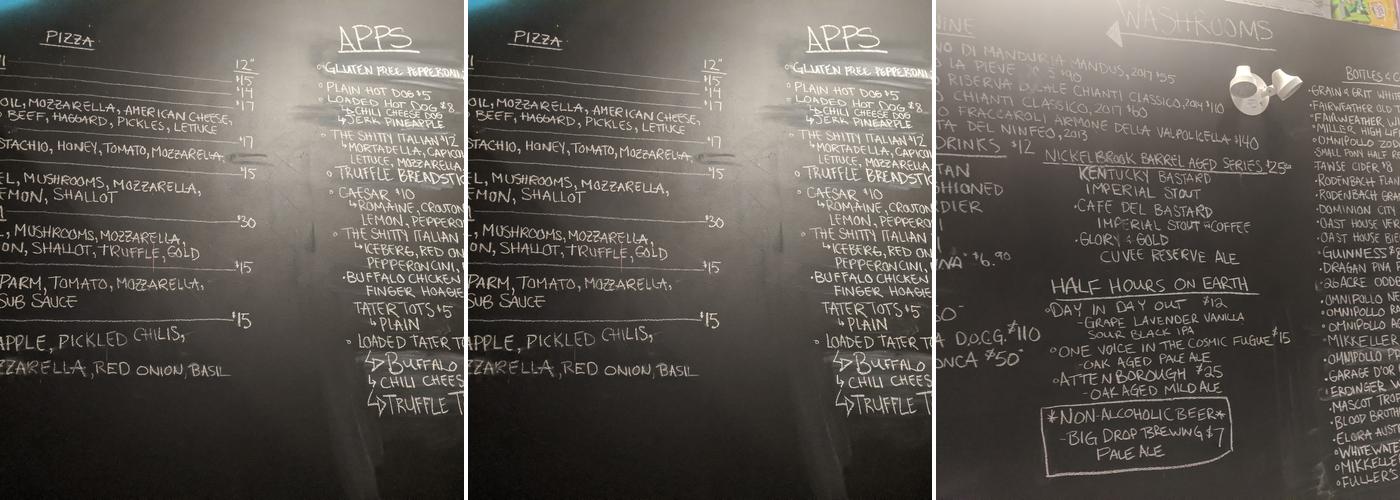 PIZZA
12"
$15
$14
$17
OIL, MOZZARELLA, AMERICAN CHEESE,
BEEF, HAGGARD, PICKLES, LETTUCE
$17
STACHIO, HONEY, TOMATO, MOZZARELLA,
$15
EL, MUSHROOMS, MOZZARELLA,
EMON, SHALLOT
$30
MUSHROOMS, MOZZARELLA,
ON, SHALLOT, TRUFFLE, GOLD
$15
PARM, TOMATO, MOZZARELLA,
SUB SAUCE
$15
APPLE, PICKLED CHILIS,
ZZARELLA, RED ONION, BASIL
APPS
GLUTEN FREE PEPPERONI
PLAIN HOT DOG $5
LOADED HOT DOG $8
↳ CHILI CHEESE DOG
↳ JERK PINEAPPLE
THE SHITTY ITALIAN $12
MORTADELLA, CAPICOL
LETTUCE, MOZZARELLA
TRUFFLE BREADSTIC
CAESAR $10
↳ ROMAINE, CROUTON
LEMON, PEPPERO
THE SHITTY ITALIAN
↳ ICEBERG, RED ON
PEPPERONCINI,
BUFFALO CHICKEN
FINGER HOAGIE
TATER TOTS $5
↳ PLAIN
LOADED TATER T
↳ BUFFALO
↳ CHILI CHEES
↳ TRUFFLE T
PIZZA
12"
$15
$14
$17
OIL, MOZZARELLA, AMERICAN CHEESE,
BEEF, HAGGARD, PICKLES, LETTUCE
$17
STACHIO, HONEY, TOMATO, MOZZARELLA,
$15
EL, MUSHROOMS, MOZZARELLA,
EMON, SHALLOT
$30
MUSHROOMS, MOZZARELLA,
ON, SHALLOT, TRUFFLE, GOLD
$15
PARM, TOMATO, MOZZARELLA,
SUB SAUCE
$15
APPLE, PICKLED CHILIS,
ZZARELLA, RED ONION, BASIL
APPS
GLUTEN FREE PEPPERONI
PLAIN HOT DOG $5
LOADED HOT DOG $8
↳ CHILI CHEESE DOG
↳ JERK PINEAPPLE
THE SHITTY ITALIAN $12
MORTADELLA, CAPICOL
LETTUCE, MOZZARELLA
TRUFFLE BREADSTIC
CAESAR $10
↳ ROMAINE, CROUTON
LEMON, PEPPERO
THE SHITTY ITALIAN
↳ ICEBERG, RED ON
PEPPERONCINI,
BUFFALO CHICKEN
FINGER HOAGIE
TATER TOTS $5
↳ PLAIN
LOADED TATER T
↳ BUFFALO
↳ CHILI CHEES
↳ TRUFFLE T
WASHROOMS
WINE
DI MANDURIA MANDUS, 2017 $55
LA PIEVE $90
RISERVA DUCALE CHIANTI CLASSICO, 2014 $110
CHIANTI CLASSICO, 2017 $60
FRACCAROLI ARMONE DELLA VALPOLICELLA $140
TA DEL NINFEO, 2013
DRINKS $12
TAN
SHIONED
RDIER
$6.90
D.O.C.G. $110
ONCA $50
NICKELBROOK BARREL AGED SERIES $25
KENTUCKY BASTARD
IMPERIAL STOUT
CAFE DEL BASTARD
IMPERIAL STOUT W COFFEE
GLORY & GOLD
CUVEE RESERVE ALE
HALF HOURS ON EARTH
DAY IN DAY OUT $12
-GRAPE LAVENDER VANILLA
SOUR BLACK IPA
ONE VOICE IN THE COSMIC FUGUE $15
-OAK AGED PALE ALE
ATTENBOROUGH $25
-OAK AGED MILD ALE
*NON-ALCOHOLIC BEER*
-BIG DROP BREWING $7
PALE ALE
BOTTLES
GRAIN & GRIT WHIT
FAIRWEATHER OLI
FAIRWEATHER
MILLER HIGH L
OMNIPOLLO ZOD
SMALL PONY HALF
TANSE CIDER $8
RODENBACH FLAN
RODENBACH GRA
DOMINION CIT
OAST HOUSE VER
OAST HOUSE BIE
GUINNESS $8
DRAGAN PIVA
26 ACRE ODDE
OMNIPOLLO NE
OMNIPOLLO
OMNIPOLLO BA
MIKKELLER
OMNIPOLLO PR
GARAGE D'OR
ERDINGER
MASCOT TROP
BLOOD BROTH
ELORA AUST
WHITEWATE
MIKKELLE
FULLER'S